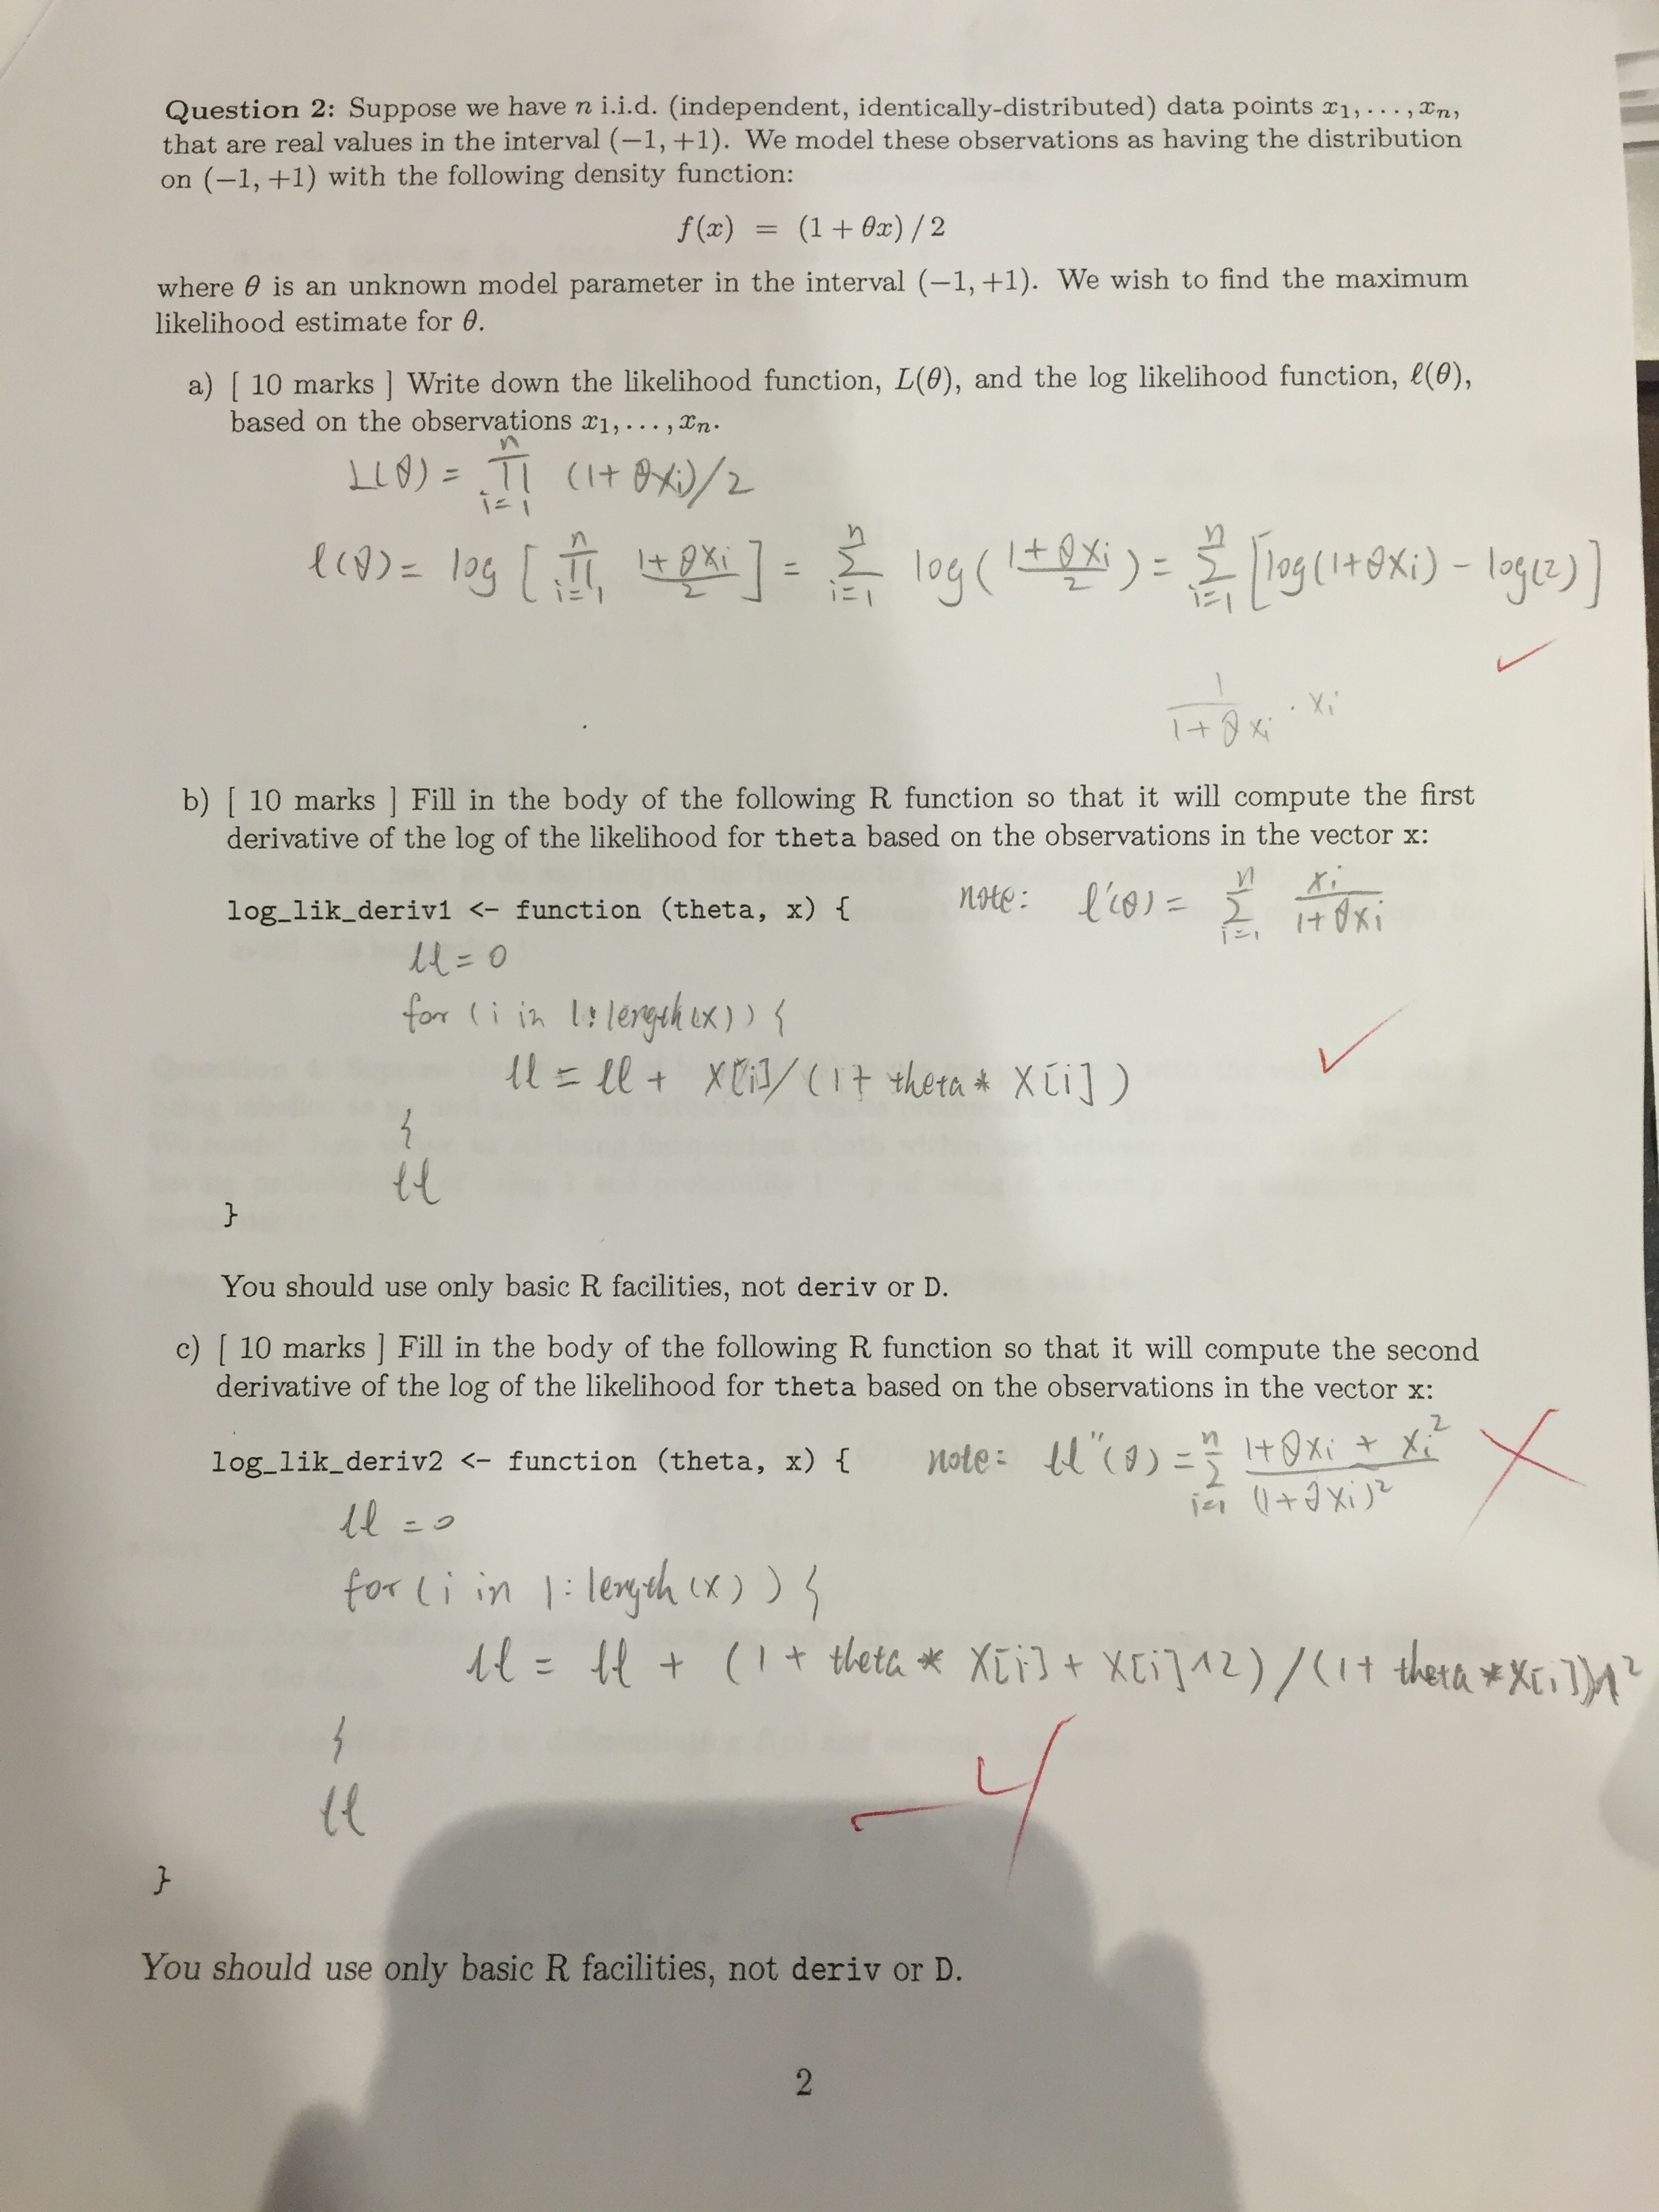 Question 2: Suppose we have n i.i.d. (independent, identically-distributed) data points x₁, . . . , xₙ,
that are real values in the interval (−1, +1). We model these observations as having the distribution
on (−1, +1) with the following density function:
f(x) = (1 + θx) / 2
where θ is an unknown model parameter in the interval (−1, +1). We wish to find the maximum
likelihood estimate for θ.
a) [ 10 marks ] Write down the likelihood function, L(θ), and the log likelihood function, ℓ(θ),
based on the observations x₁, . . . , xₙ.
L(θ) = ∏_{i=1}^{n} (1+ θxi)/2
ℓ(θ) = log [ ∏_{i=1}^{n} (1+θxi)/2 ] = ∑_{i=1}^{n} log( (1+θxi)/2 ) = ∑_{i=1}^{n} [log(1+θxi) − log(2)]
1/(1+θxi) · xi
b) [ 10 marks ] Fill in the body of the following R function so that it will compute the first
derivative of the log of the likelihood for theta based on the observations in the vector x:
log_lik_deriv1 <- function (theta, x) { note: ℓ'(θ) = ∑_{i=1}^{n} xi/(1+θxi)
ll = 0
for (i in 1:length(x)) {
ll = ll + x[i]/(1+ theta * x[i])
}
ll
}
You should use only basic R facilities, not deriv or D.
c) [ 10 marks ] Fill in the body of the following R function so that it will compute the second
derivative of the log of the likelihood for theta based on the observations in the vector x:
log_lik_deriv2 <- function (theta, x) { note: ll''(θ) = ∑_{i=1}^{n} (1+θxi + xi²)/(1+θxi)²
ll = 0
for (i in 1:length(x)) {
ll = ll + (1 + theta * x[i] + x[i]^2) / (1+ theta * x[i])^2
}
ll
−4
}
You should use only basic R facilities, not deriv or D.
2